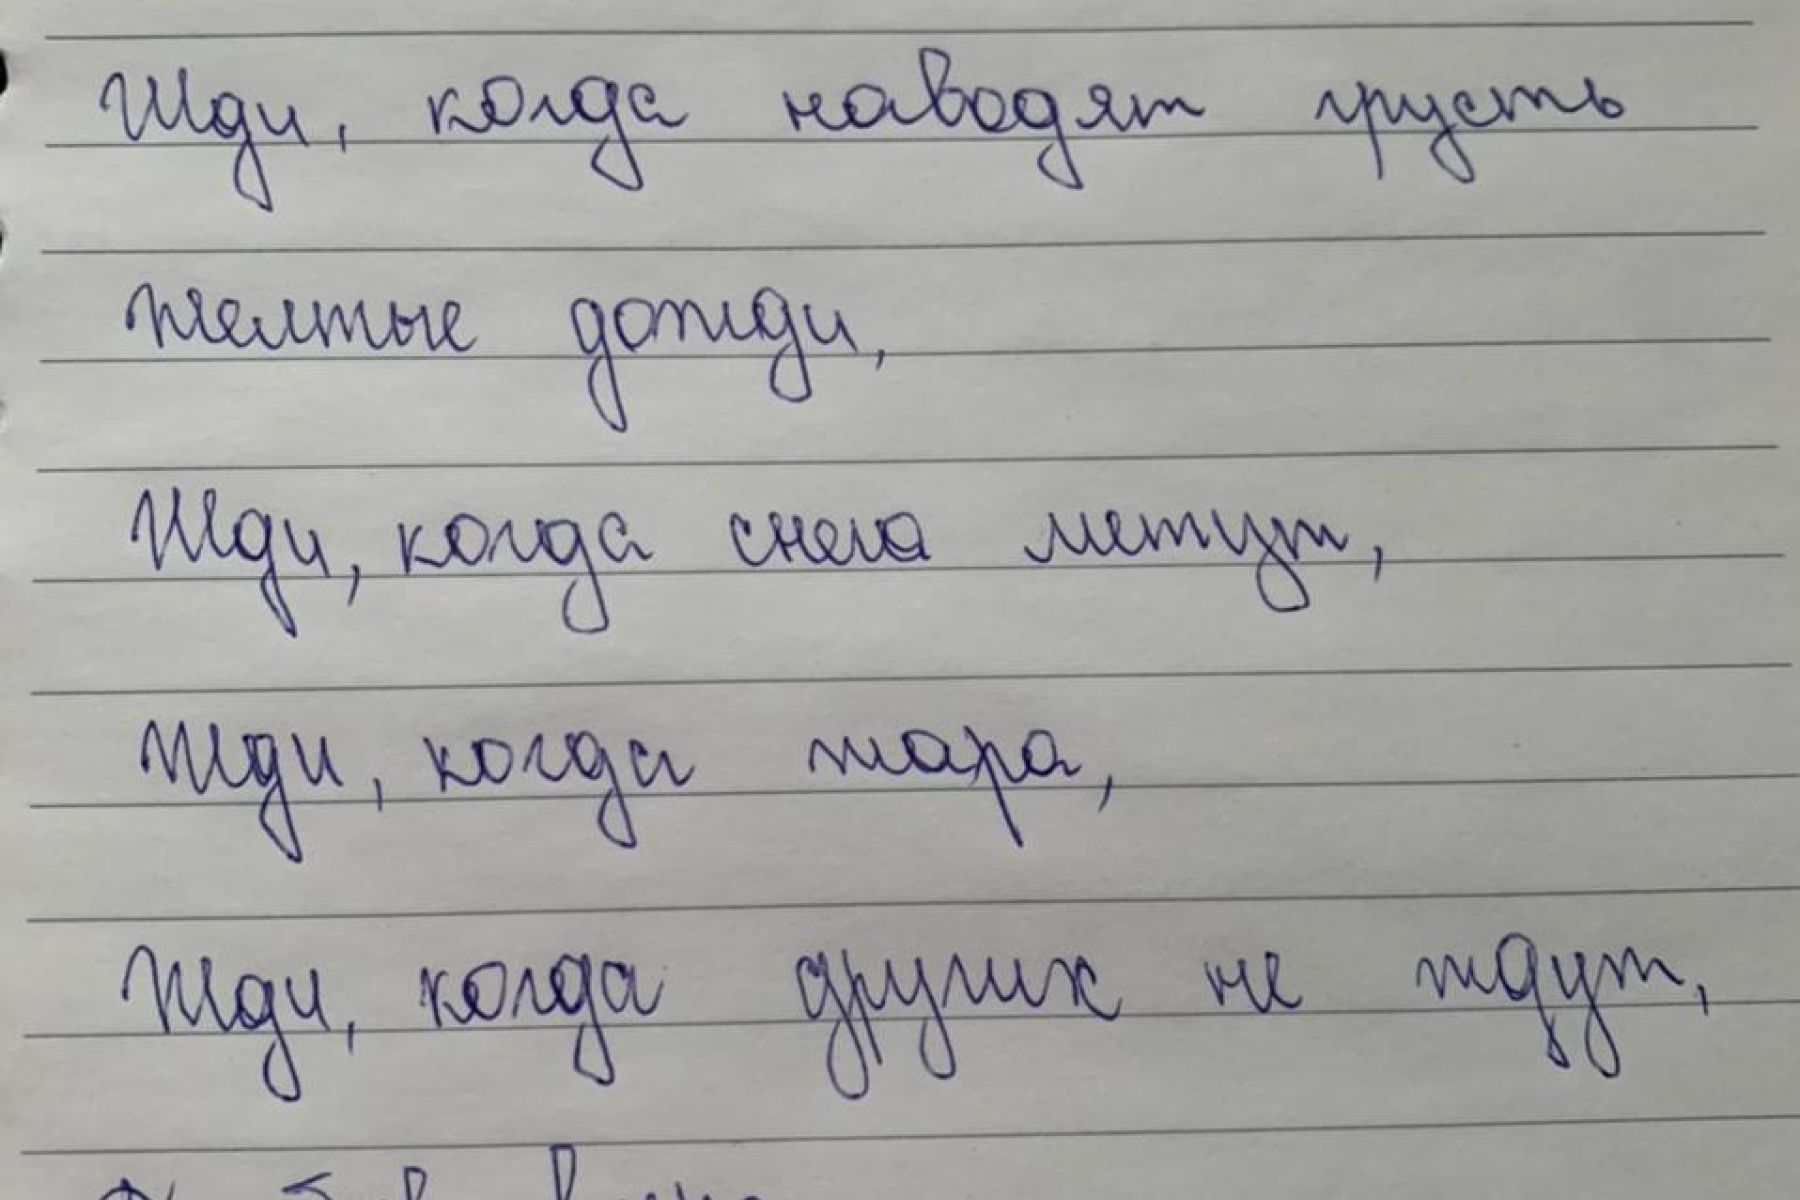 Жди, когда наводят грусть
Желтые дожди,
Жди, когда снега метут,
Жди, когда жара,
Жди, когда других не ждут,